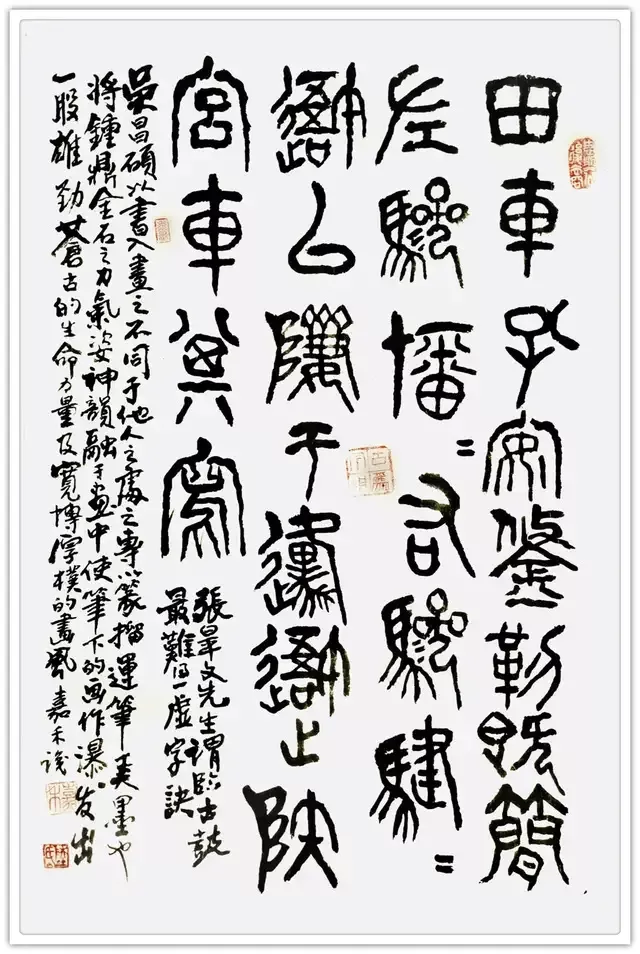 田車孔安鋚勒既簡
左驂旛=右驂騝=
䢩以隮于邍䢩止陕
宮車其寫
張皋文先生謂臨古鼓
最難得一虛字訣
吳昌碩以書入畫之不同于他人之處之專以篆籀運筆弄墨也
將鍾鼎金石之力氣姿神韻融于畫中使筆下的画作瀑〻发出
一股雄勁蒼古的生命力量及寬博厚樸的畫風嘉禾識